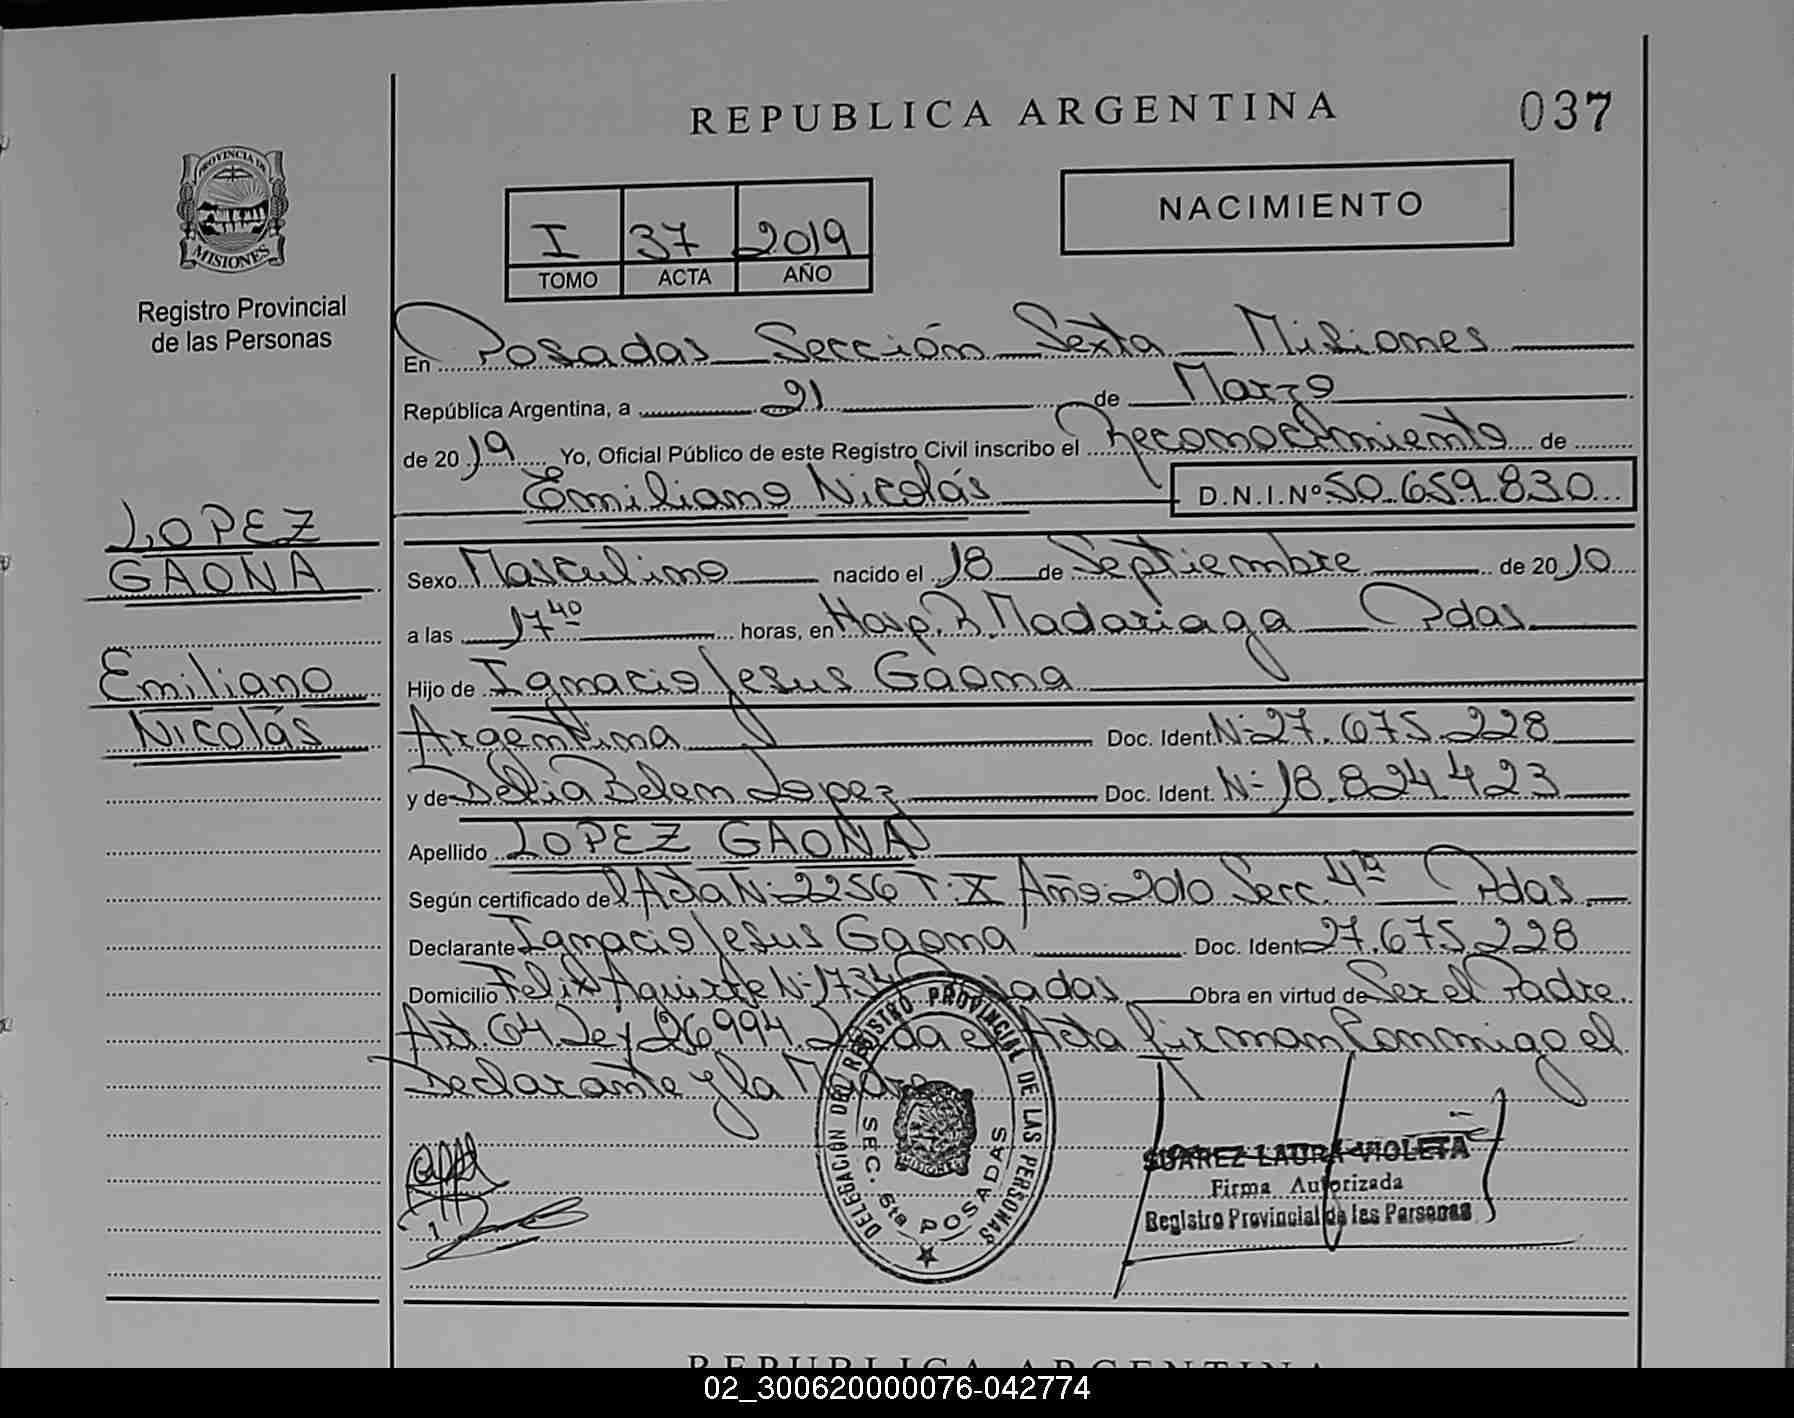 REPUBLICA ARGENTINA
037
PROVINCIA DE
MISIONES
Registro Provincial
de las Personas
NACIMIENTO
I 37 2019
TOMO ACTA AÑO
En Posadas Sección Sexta Misiones
República Argentina, a 21 de Marzo
de 2019 Yo, Oficial Público de este Registro Civil inscribo el Reconocimiento de
Emiliano Nicolás D.N.I.Nº 50.659.830
LOPEZ
GAONA
Emiliano
Nicolás
Sexo Masculino nacido el 18 de Septiembre de 2010
a las 17 40 horas, en Hosp. R. Madariaga Pdas
Hijo de Ignacio Jesus Gaona
Argentina Doc. Ident. Nº 27.675.228
y de Delia Belem Lopez Doc. Ident. Nº 18.824.423
Apellido LOPEZ GAONA
Según certificado de l Acta Nº 2256 T: X Año: 2010 Secc. 4ta Pdas
Declarante Ignacio Jesus Gaona Doc. Ident 27.675.228
Domicilio Felix Aguirre Nº 1734 Posadas Obra en virtud de Ser el Padre
Art. 64 Ley 26994. Leida el Acta firman Conmigo el
Declarante y la Madre
DELEGACIÓN DEL REGISTRO PROVINCIAL DE LAS PERSONAS
SEC. 6ta POSADAS
MISIONES
SUAREZ LAURA VIOLETA
Firma Autorizada
Registro Provincial de las Personas
REPUBLICA ARGENTINA
02_300620000076-042774